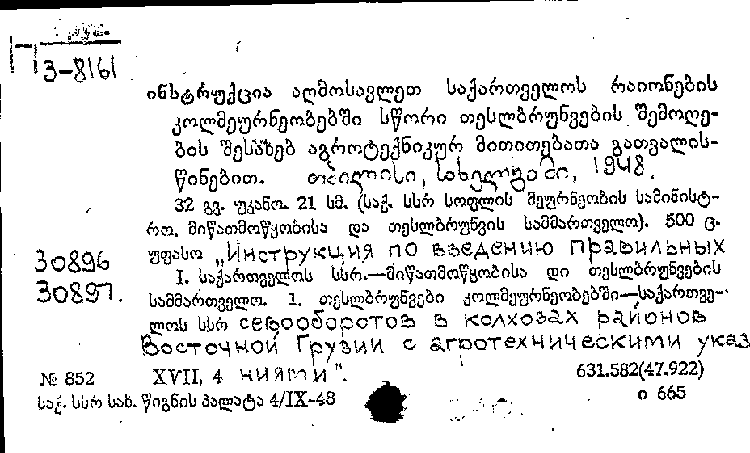 3-8161
ინსტრუქცია აღმოსავლეთ საქართველოს რაიონების
კოლმეურნეობებში სწორი თესლბრუნვების შემოღე-
ბის შესახებ აგროტექნიკურ მითითებათა გათვალის-
წინებით. თბილისი, სახელგამი, 1948.
32 გვ. უკანო. 21 სმ. (საქ. სსრ სოფლის მეურნეობის სამინისტ-
რო. მიწათმოწყობისა და თესლბრუნვის სამმართველო). 500 ც.
უფასო „Инструкция по введению правильных
30896
I. საქართველოს სსრ.—მიწათმოწყობისა და თესლბრუნვების
30897.
სამმართველო. 1. თესლბრუნვები კოლმეურნეობებში—საქართვე-
ლოს სსრ севооборотов в колхозах районов
Восточной Грузии с агротехническими указ
№ 852 XVII, 4 ниями". 631.582(47.922)
საქ. სსრ სახ. წიგნის პალატა 4/IX-48 ი 665